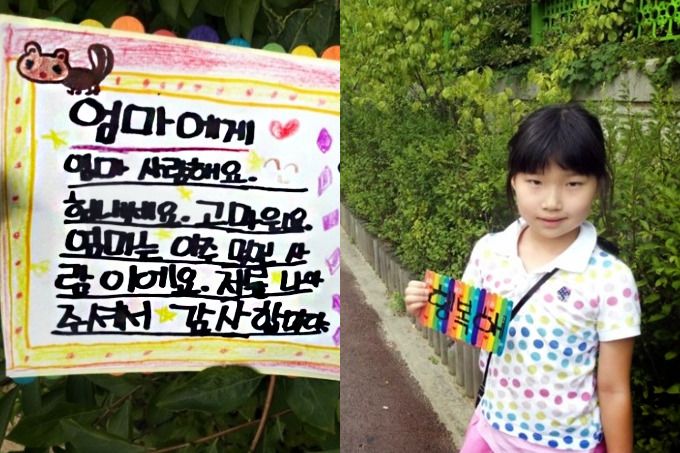 엄마에게
엄마 사랑해요.
힘내세요. 고마워요.
엄마는 아주 사
람이에요. 저를 나아
주셔서 감사합니다
행복해